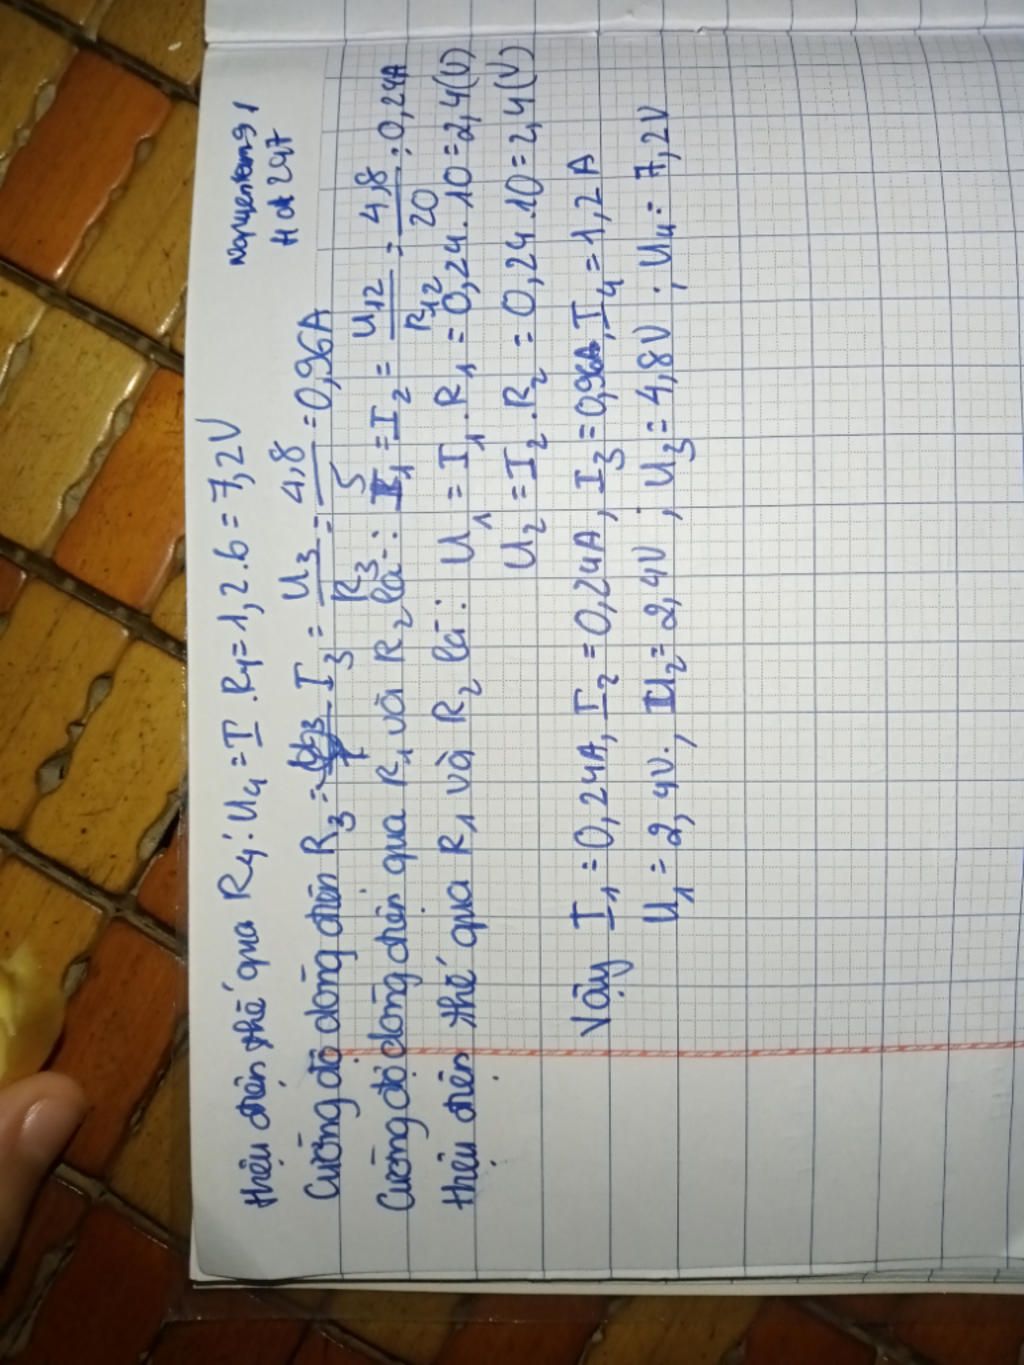 Hiệu điện thế qua R4: U4 = I . R4 = 1,2.6 = 7,2V
Cường độ dòng điện R3 = I3 = U3/R3 = 4,8/5 = 0,96A
Cường độ dòng điện qua R1 và R2 là: I1 = I2 = U12/R12 = 4,8/20 = 0,24A
Hiệu điện thế qua R1 và R2 là: U1 = I1 . R1 = 0,24.10 = 2,4(V)
U2 = I2 . R2 = 0,24.10 = 2,4(V)
Vậy I1 = 0,24A, I2 = 0,24A, I3 = 0,96A, I4 = 1,2A
U1 = 2,4V, U2 = 2,4V; U3 = 4,8V; U4 = 7,2V